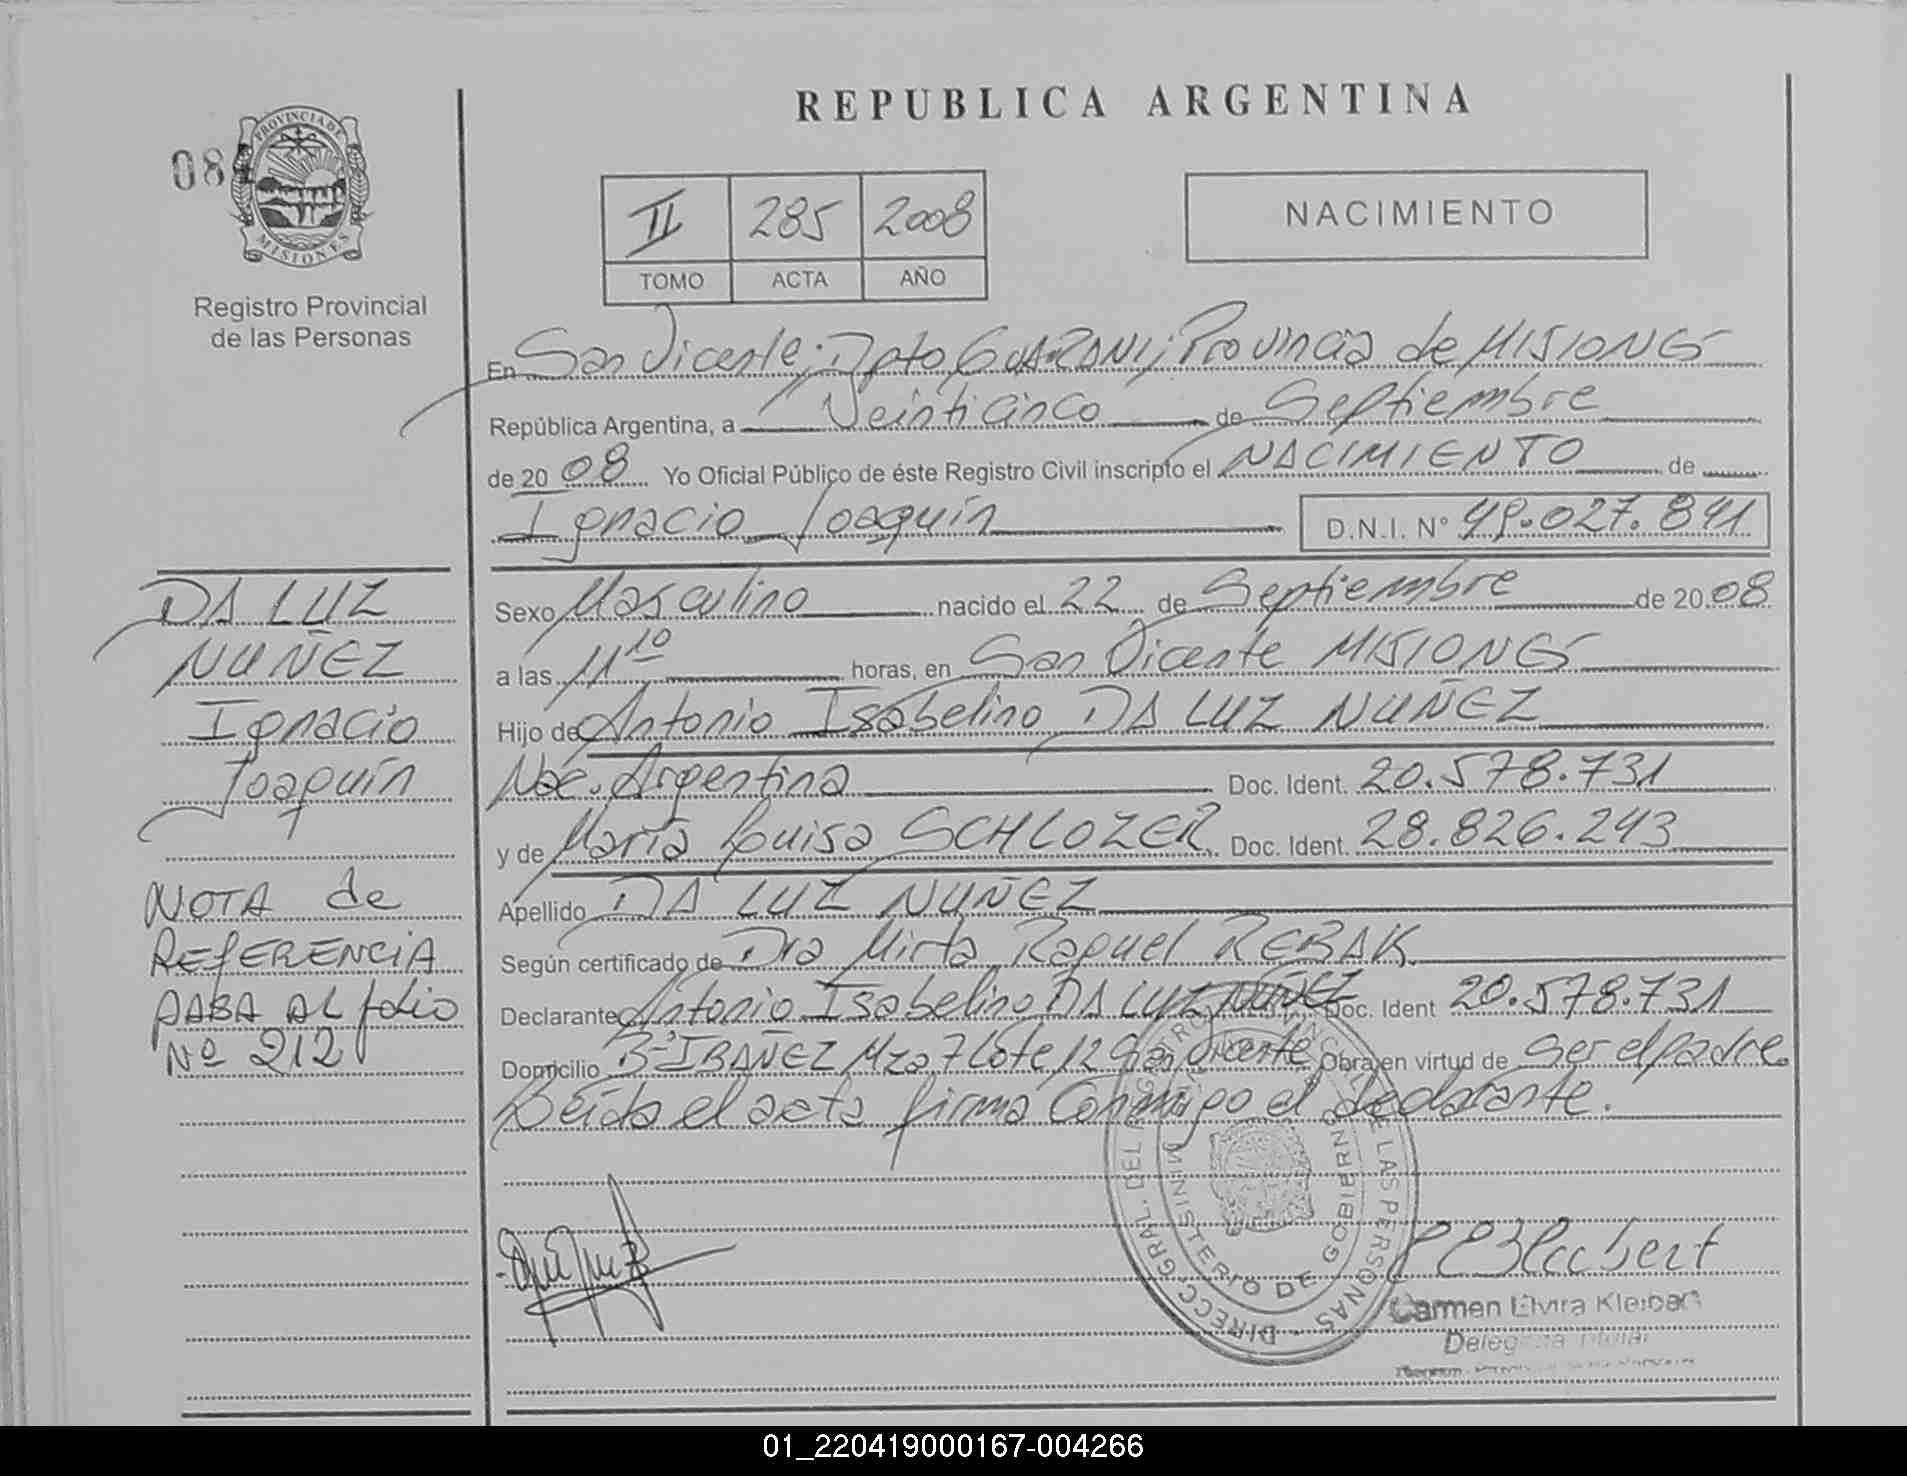 REPUBLICA ARGENTINA
08
PROVINCIA DE
MISIONES
Registro Provincial
de las Personas
II 285 2008
TOMO ACTA AÑO
NACIMIENTO
En San Vicente; Dpto GUARANI; Provincia de MISIONES
República Argentina, a Veinticinco de Septiembre
de 2008 Yo Oficial Público de éste Registro Civil inscripto el NACIMIENTO de
Ignacio Joaquín D.N.I. N° 49.027.841
Sexo Masculino nacido el 22 de Septiembre de 2008
a las 11 10 horas, en San Vicente MISIONES
Hijo de Antonio Isabelino DA LUZ NUÑEZ
Nac. Argentina Doc. Ident. 20.578.731
y de María Luisa SCHLOZER Doc. Ident. 28.826.243
Apellido DA LUZ NUÑEZ
Según certificado de Dra Mirta Raquel REBAK
Declarante Antonio Isabelino DA LUZ NUÑEZ Doc. Ident 20.578.731
Domicilio B° IBAÑEZ Mza 7 Lote 12 San Vicente Obra en virtud de Ser el padre
Leída el acta firma Conmigo el declarante.
DA LUZ
NUÑEZ
Ignacio
Joaquín
NOTA de
REFERENCIA
PASA AL folio
Nº 212
DIRECC. GRAL. DEL DE LAS PERSONAS
MINISTERIO DE GOBIERNO
Carmen Elvira
Delegada Titular
01_220419000167-004266